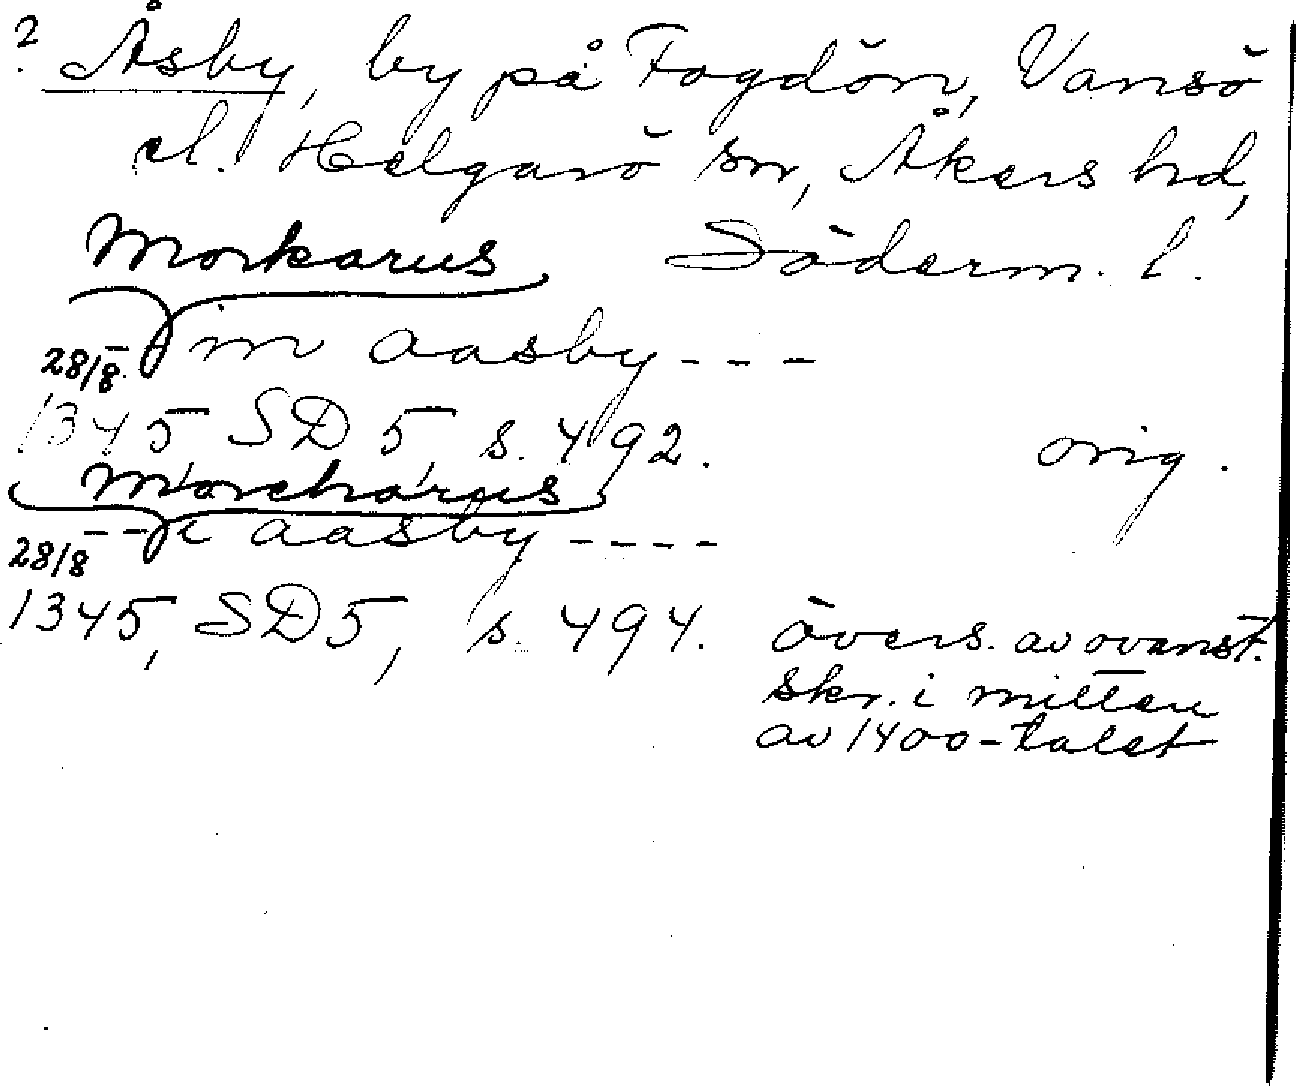 ? Åsby, by på Fogdön, Vansö
el. Helgarö sn, Åkers hd,
Morkarus Söderm. l.
in aasby - - -
28/8
1345 SD 5 s. 492. orig.
Morcharus
- - i aasby - - - -
28/8
1345, SD 5, s. 494. övers. av ovanst.
skr. i mitten
av 1400-talet